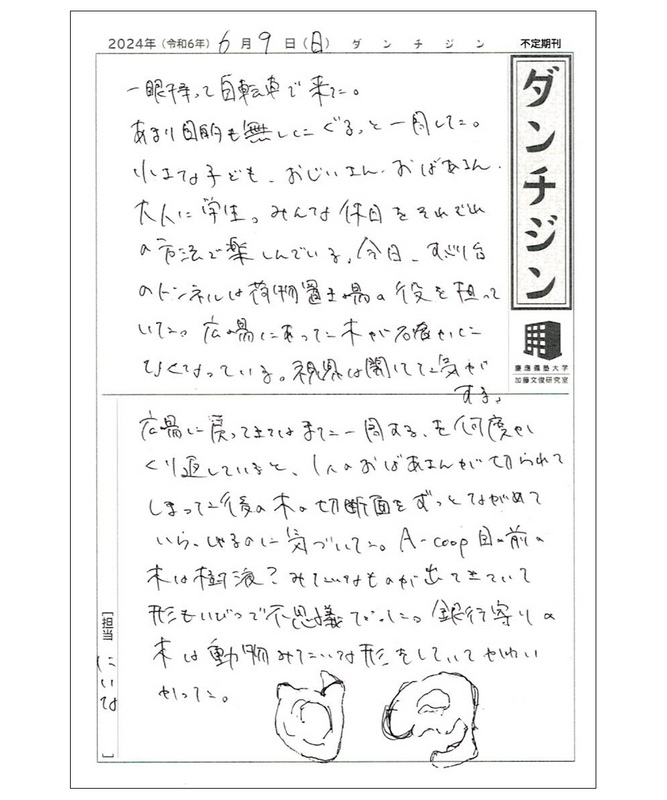 2024年(令和6年) 6月9日(日) ダンチジン 不定期刊
ダンチジン
慶應義塾大学
加藤文俊研究室
一眼持って自転車で来た。
あまり目的も無しにぐるっと一周した。
小さな子ども、おじいさん、おばあさん、
大人に学生。みんな休日をそれぞれ
の方法で楽しんでいる。今日、すべり台
のトンネルは荷物置き場の役を担って
いた。広場にあった木が何本か
なくなっている。視界は開けた気が
する。
広場に戻ってきてはまた一周する、を何度か
くり返していると、1人のおばあさんが切られて
しまった後の木の切断面をずっとながめて
いらっしゃるのに気づいた。A-coop目の前の
木は樹液?みたいなものが出てきていて
形もいびつで不思議だった。銀行寄りの
木は動物みたいな形をしていてかわい
かった。
[担当 にいな ]